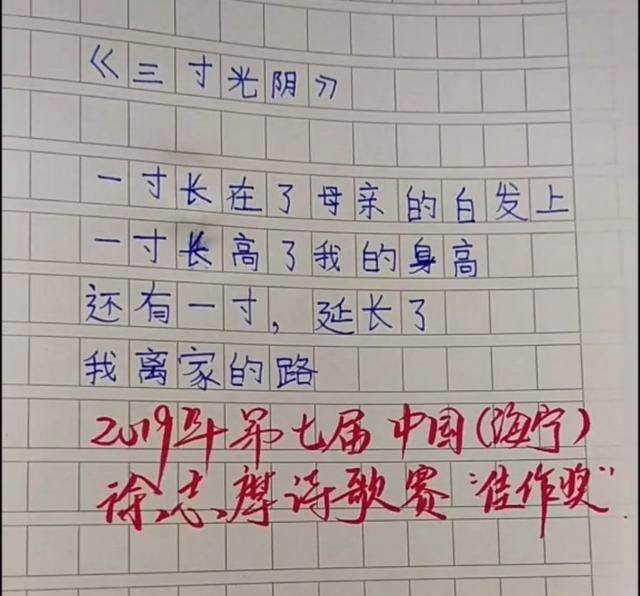 《三寸光阴》
一寸长在了母亲的白发上
一寸长高了我的身高
还有一寸，延长了
我离家的路
2019年第七届中国(海宁)
徐志摩诗歌赛"佳作奖"